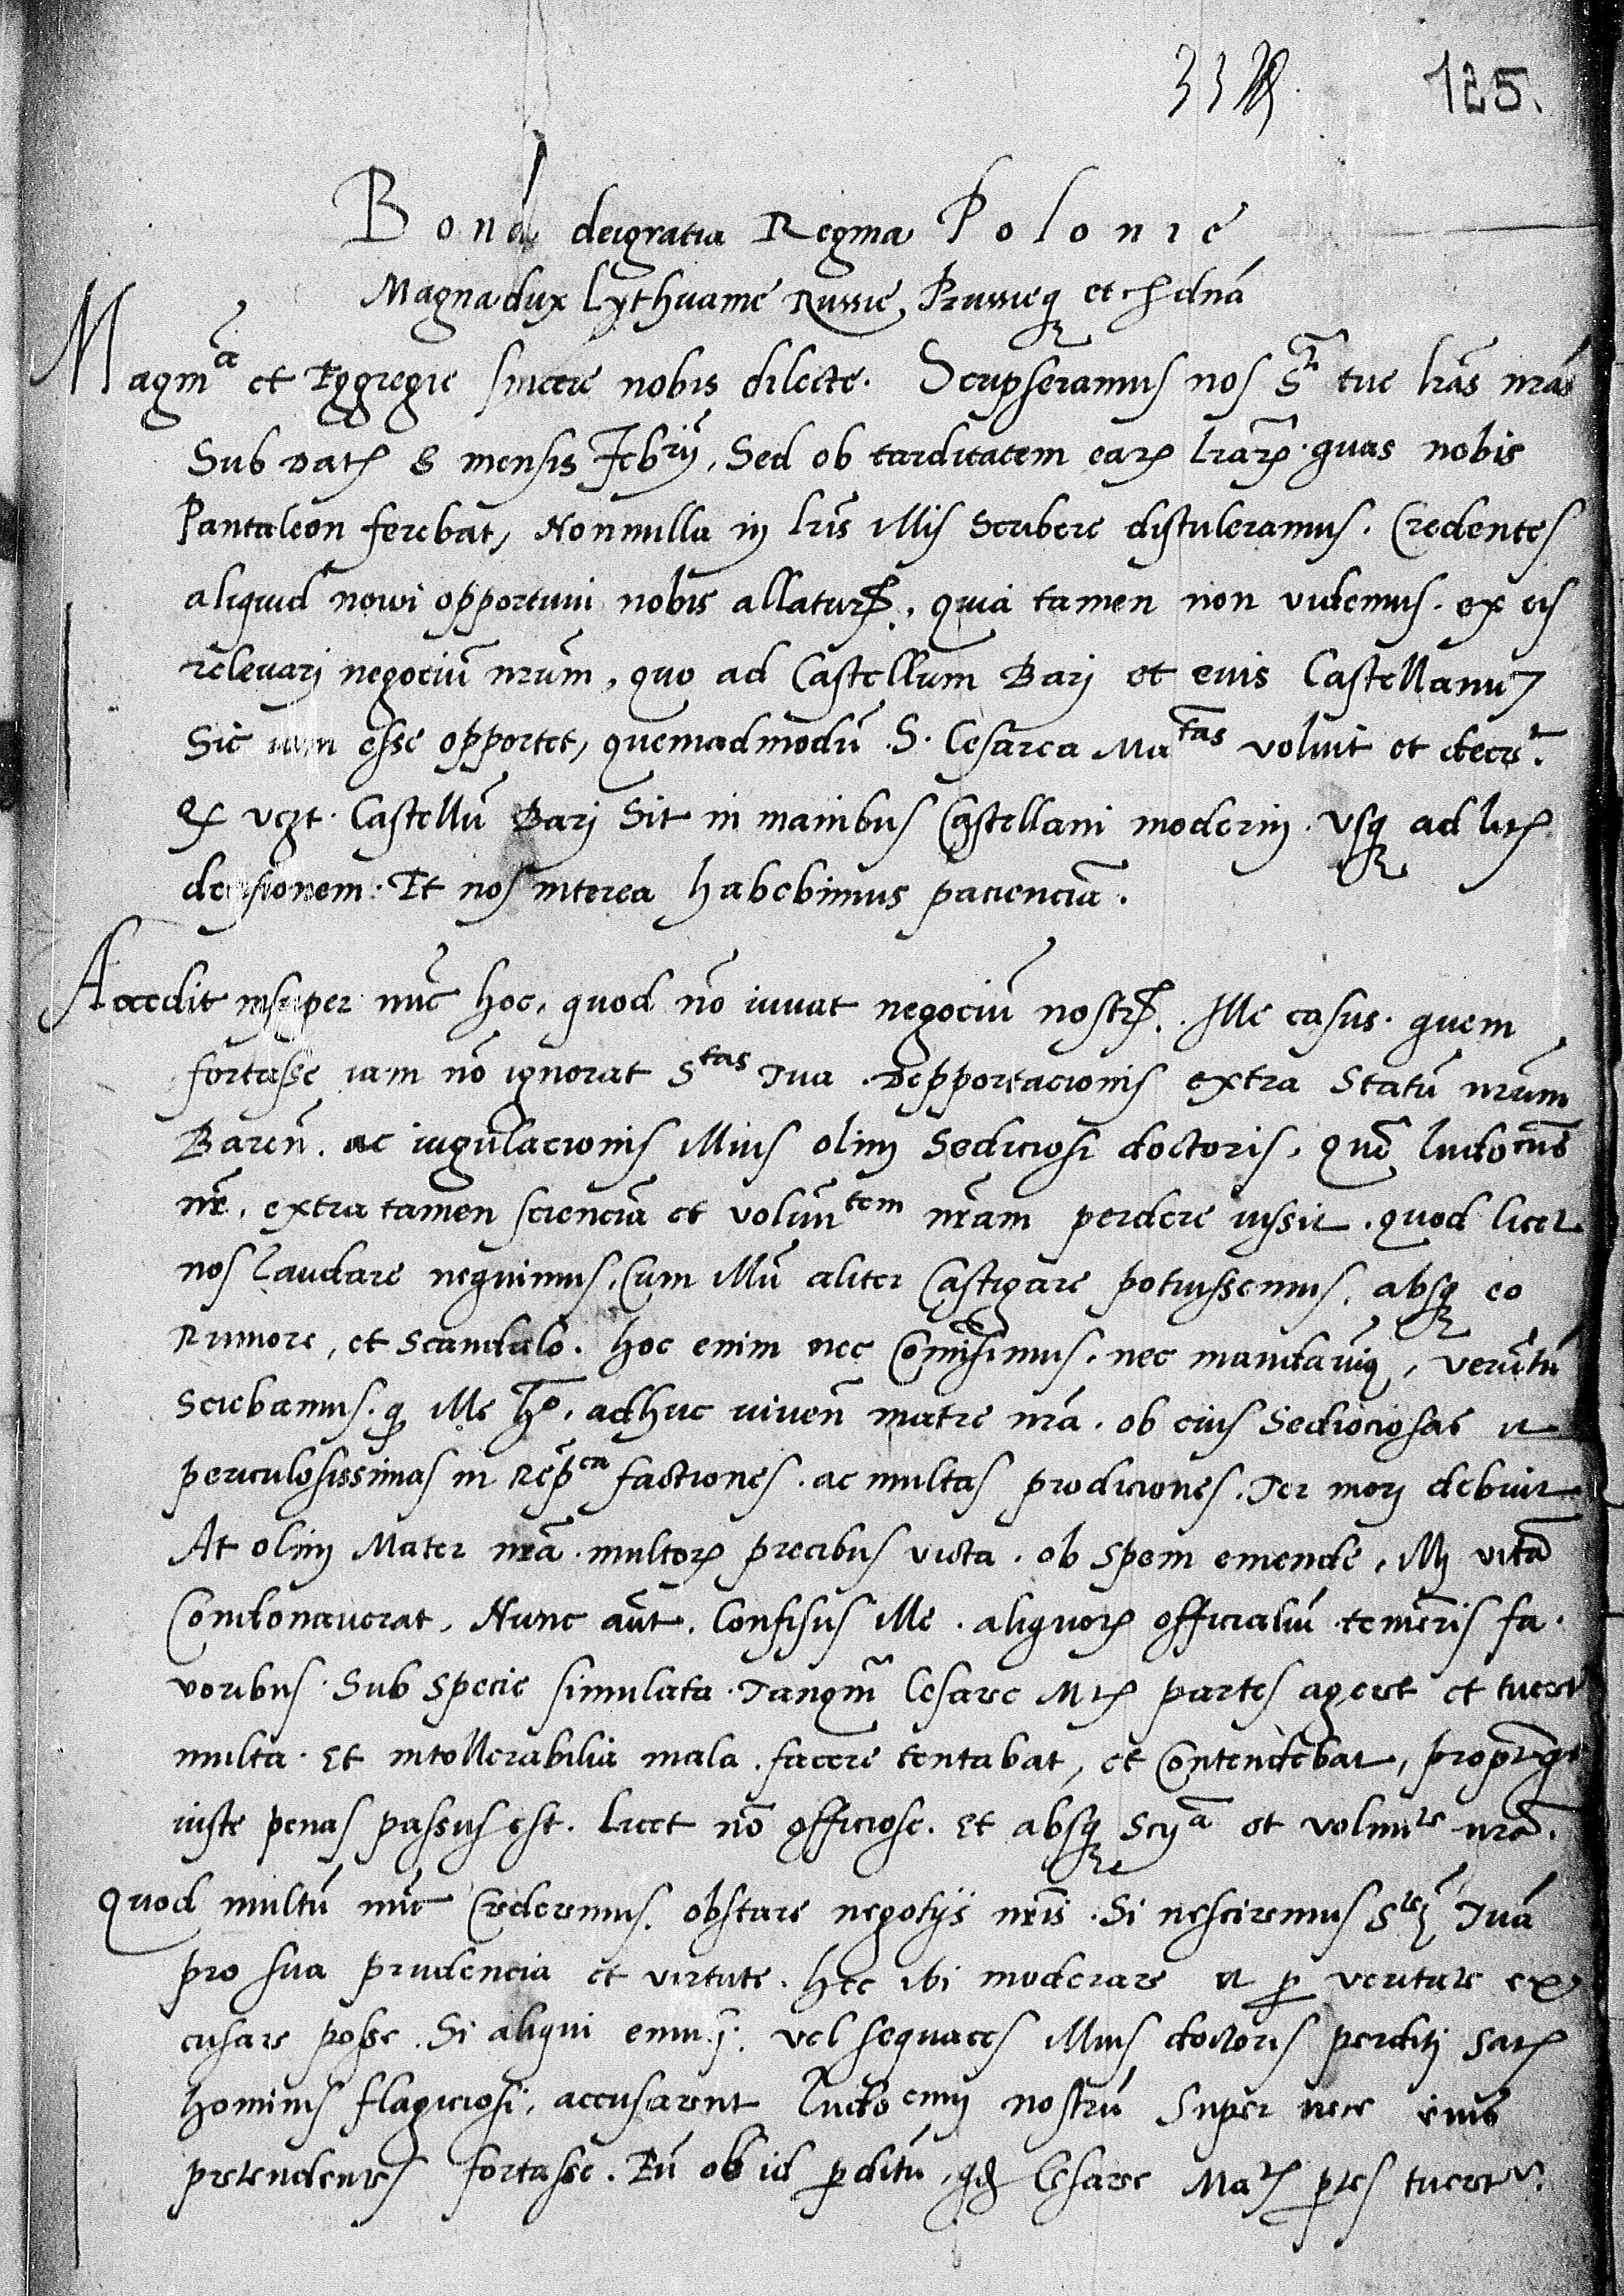 125.
Bona dei gratia Regina Polonie
Magna dux Lythuanie Russie, Prussieq̨ etc̃ dnã
Magnᶜᵃ et Eggregie sincere nobis dilecte. Scripseramus nos Sʳⁱ tue lrãs nrãs
Sub datꝭ 8 mensis Febʳⁱⁱ, Sed ob tarditatem earꝝ lrãrꝝ quas nobis
Pantaleon ferebat, Nonnulla in lrĩs illis scribere distuleramus. Credentes
aliquid nowi opportuni nobis allaturꝝ. quia tamen non videmus. ex eis
relevari negociũ nrũm, quo ad Castellum Barj et euis Castellanũ
Sic iam esse opportet, quemadmodũ S. Cesarea Maᵗᵃˢ voluit et decrᵗ.
ꝙ vcꝫt. Castellũ Barj Sit in manibus Castellani moderni. vsq̨ ad litꝭ
decisionem. Et nos interea habebimus pacienciã.
Accedit insuper nũc hoc, quod nõ iuvat negociũ nostrꝝ. Ille casus. quem
fortasse iam nõ ignorat Sᵗᵃˢ Tua. Depportacionis extra Statũ nrũm
Bareñ. ac iugulacionis illius olim Sediciosi doctoris, quẽ lucloᶜⁿˢ
nr̃. extra tamen scienciã et volunᵗᵉᵐ nrãm perdere iussit. quod licet
nos laudare nequimus, Cum illũ aliter Castigare potuissemus, absq̨ eo
Rumore, et Scandalo. hoc enim nec Comisimus, nec mandauiꝰ, verũtñ
Sciebamus. ꝙ ille hõ, adhuc viveñ matre nrã. ob eius Sediociosas et
periculosissimas in Rẽpᶜᵃ factiones. ac multas prodiciones. Ter mori debuit
At olim Mater nrã. multorꝝ precibus victa. ob spem emende, illi vitã
Condonaverat, Nunc aũt. Confisus ille. aliquorꝝ officialiũ temẽris fa.
voribus. Sub Specie simulata. Tanq̃m Cesaree Mtꝭ partes ageret et tueret
multa. Et intollerabilia mala. facere tentabat, et Contendebat, propt̃ q̃
iuste penas passus est. Licet nõ officiose. Et absq̨ Scⁱᵃ et volunᵗᵉ nrã.
Quod multũ nũc Crederemus. obstare negotijs nrĩs. Si nesciremus Sᵗᵉᵐ Tuã
pro sua prudencia et virtute. hec ibi moderare et ꝑ veritate ex
cusare posse. Si aliqui emuli. vel sequaces illius doctoris perditi Satꝭ
hominis flagiciosi, accusarent lucloᶜⁿᵐ nostrũ Super nece euis
pretendentes fortasse. Eũ ob id ꝑditũ, qđ Cesaree Matꝭ ꝑtes tueretʳ.